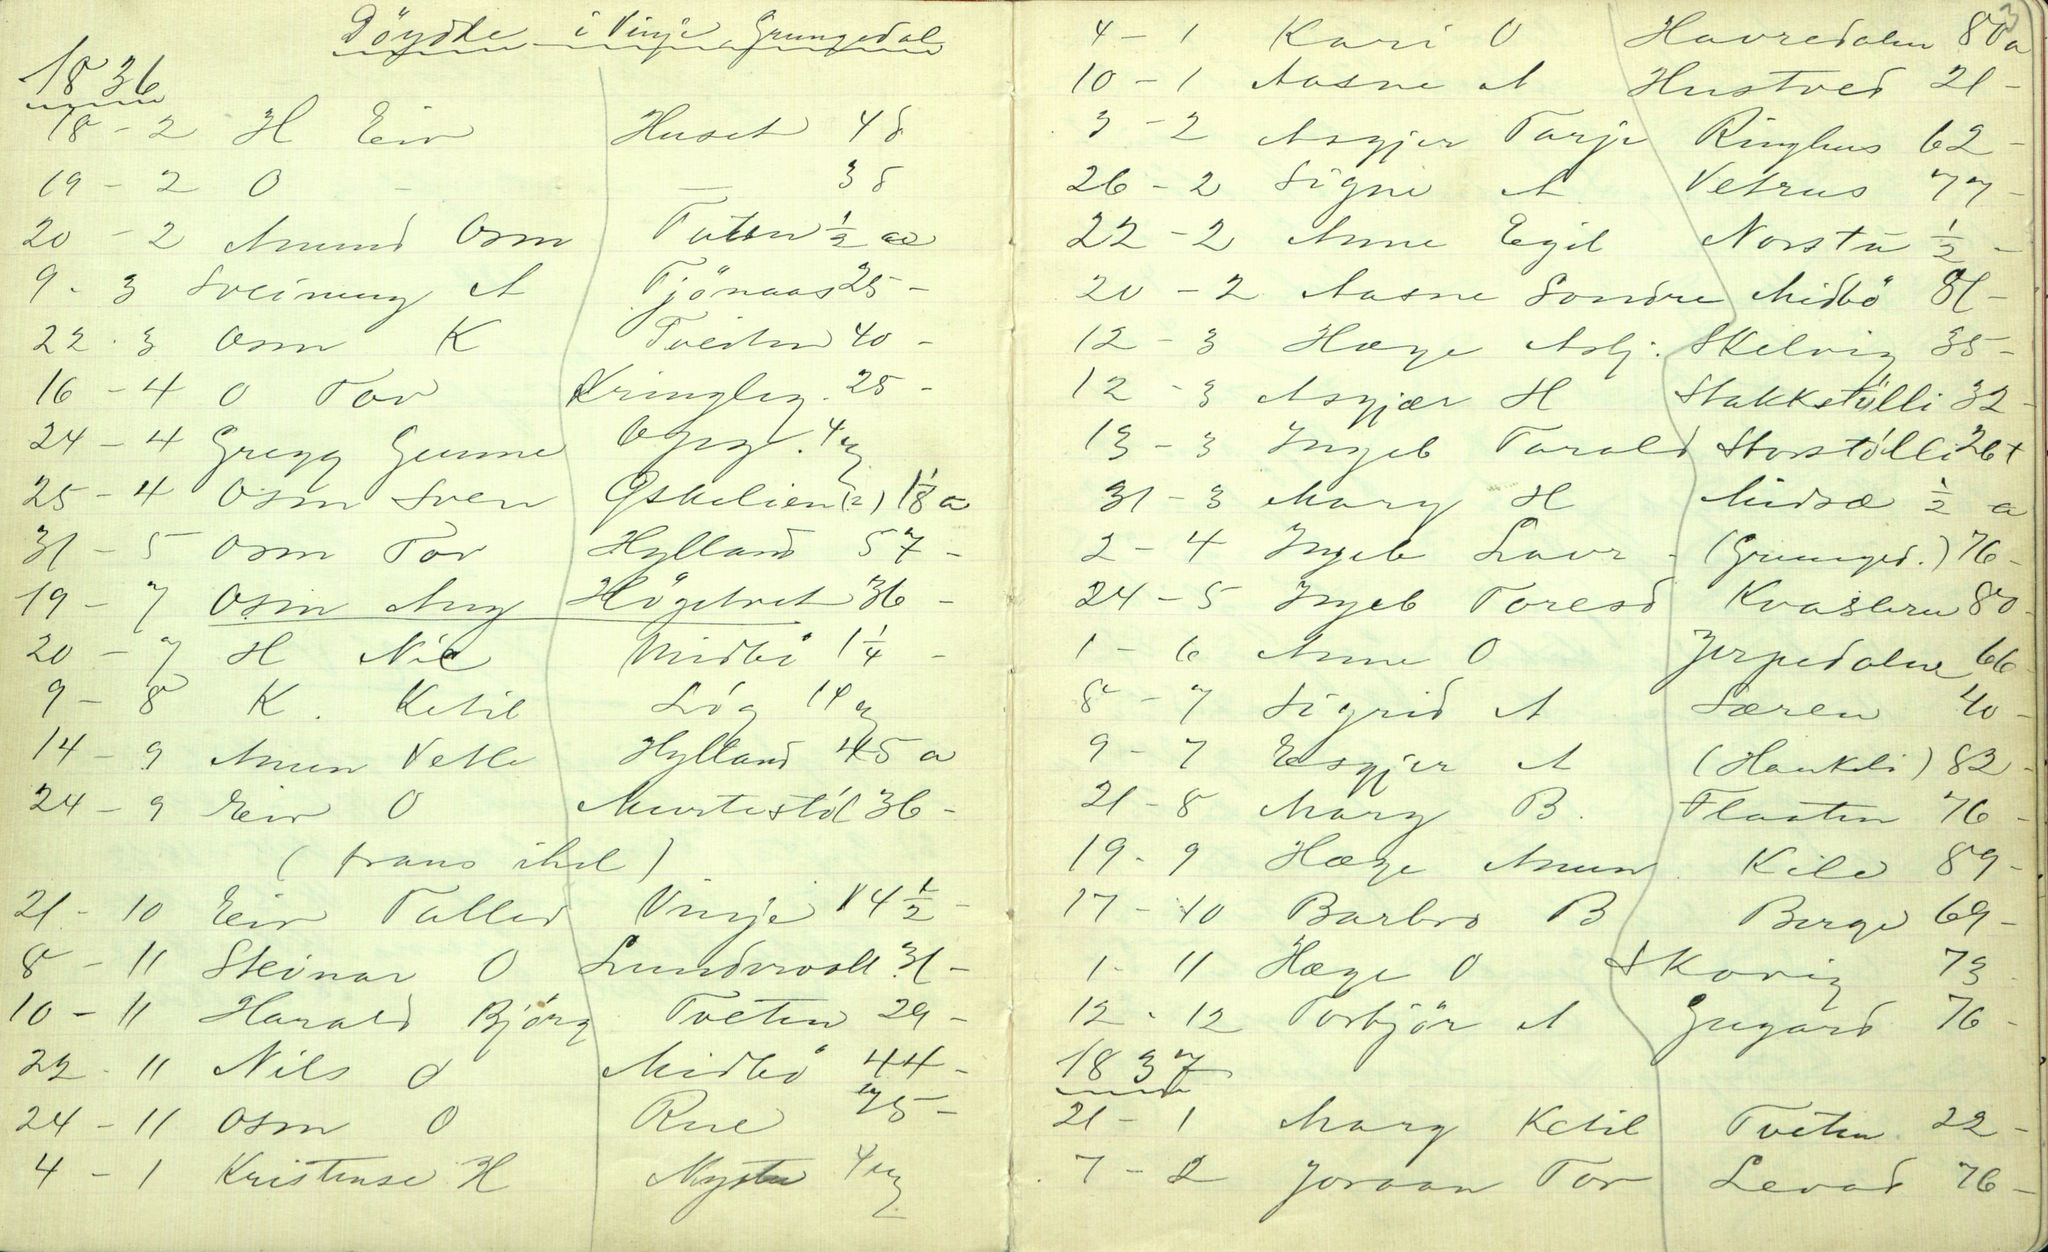 Döydde i Vinje, Grungedal
1836
18 - 2 H Eiv Huset 48
19 - 2 O - — 38
20 - 2 Amund Osm Tveten ½ aa
9 - 3 Sveinung A Tjönaas 25 -
22 - 3 Osm K Tveiten 40 -
16 - 4 O Tov Kringleg. 25 -
24 - 4 Gregg Gunne
25 - 4 Osm Sven 1⅛ a
31 - 5 Osm Tov Hylland 57 -
19 - 7 Osm Aug Högetveit 36 -
20 - 7 H Nil Midbö 1¼ -
9 - 8 K. Ketil Lög 14
14 - 9 Amun Vetle Hylland 45 a
24 - 9 Eiv O Murtestöl 36 -
(fraus ihel)
21 - 10 Eiv Talleid Vinje 14½ -
8 - 11 Steinar O Lundevall 31 -
10 - 11 Harald Björg Tveten 29 -
22 - 11 Nils O Midbö 44 -
24 - 11 Osm O Rue 75 -
4 - 1 Kristense H Nystu 4
3
4 - 1 Kari O Havredalen 80 a
10 - 1 Aasne A Hustved 21 -
3 - 2 Asgjer Tarje Ringhus 62 -
26 - 2 Signe A Vetrus 77 -
22 - 2 Anne Egil Norstu ½ -
20 - 2 Aasne Sondre Midbö 81 -
12 - 3 Hæge Aslj. Skelvig 35 -
12 - 3 Asgjær H Stakkstölli 32 -
13 - 3 Ingeb Tarald Storstölli 26 +
31 - 3 Marg H Midsæ ½ a
2 - 4 Ingeb Lavr - (Grunged.) 76 -
24 - 5 Ingeb Toresd 80 -
1 - 6 Anne O Jerpedalen 66 -
8 - 7 Sigrid A Særen 40 -
9 - 7 Esgjer A (Haukeli) 82 -
21 - 8 Marg B. Flaaten 76 -
19 - 9 Hæge Amun. Kile 89 -
17 - 10 Barbro B Berge 69 -
1 - 11 Hæge O Skovig 73 -
12 - 12 Torbjör A Gugard 76 -
1837
21 - 1 Marg Ketil Tveten 22 -
7 - 2 Joraan Tov Levad 76 -